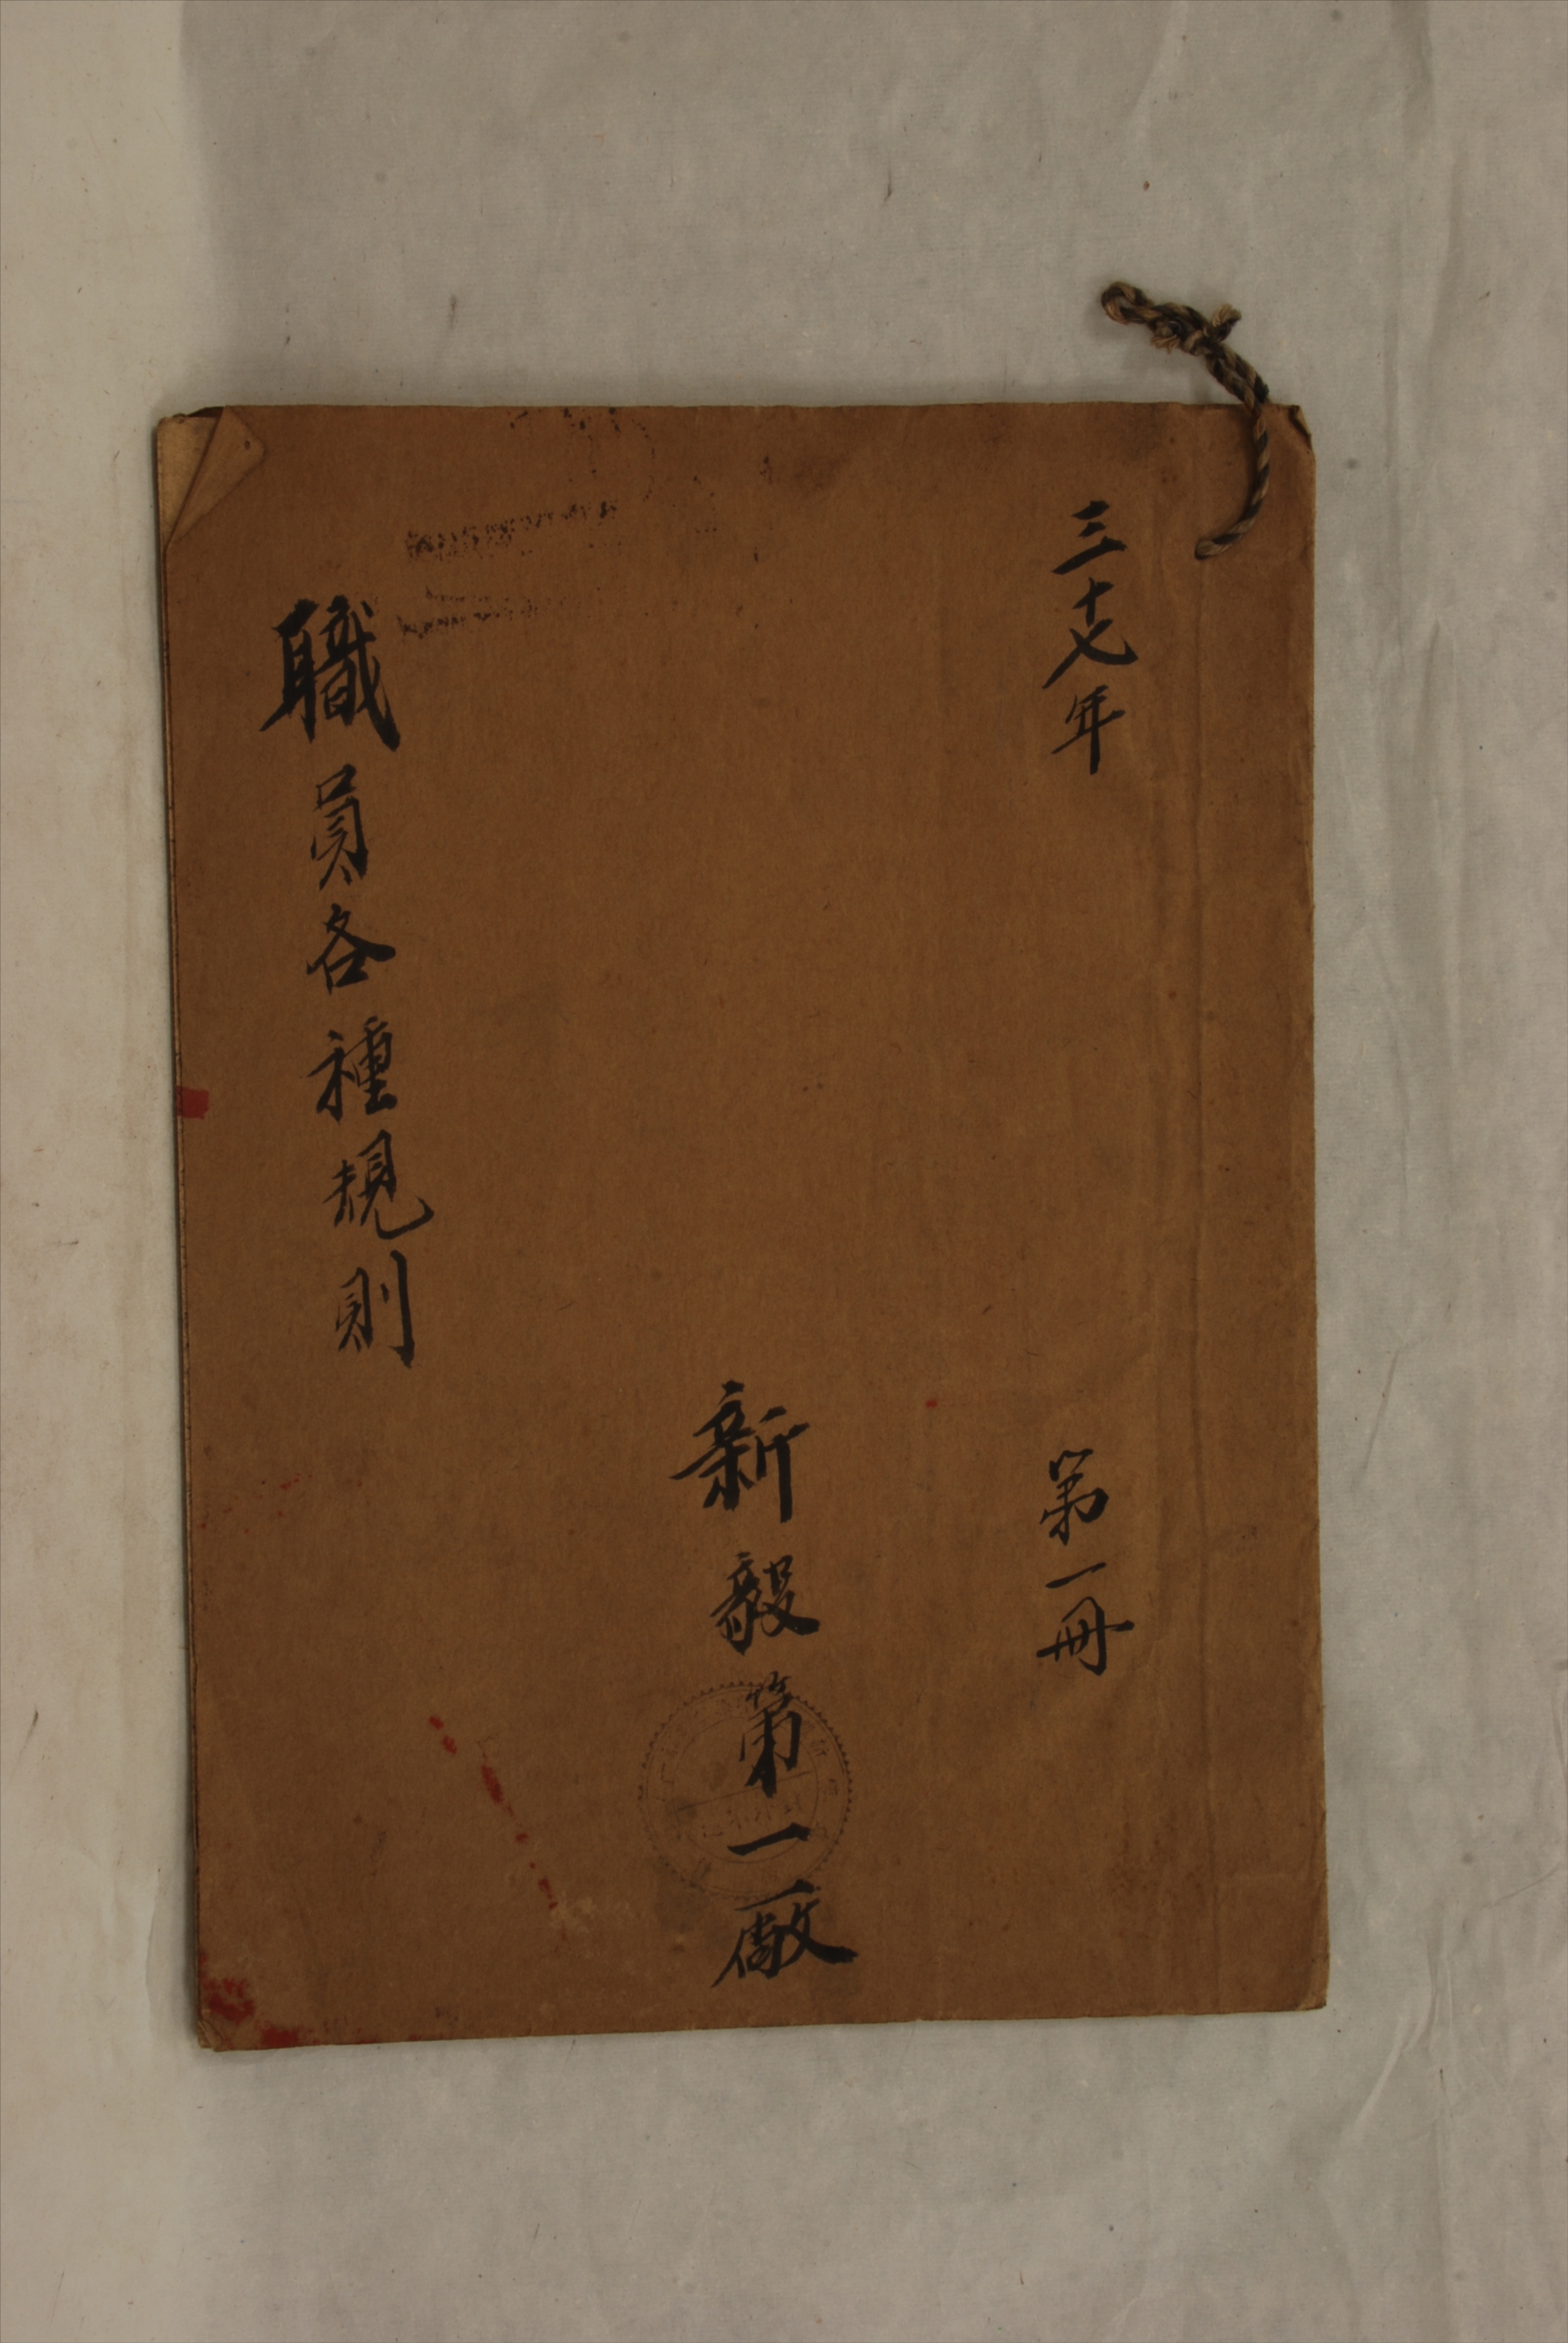 三十七年
第一冊
新毅第一廠
職員各種規則